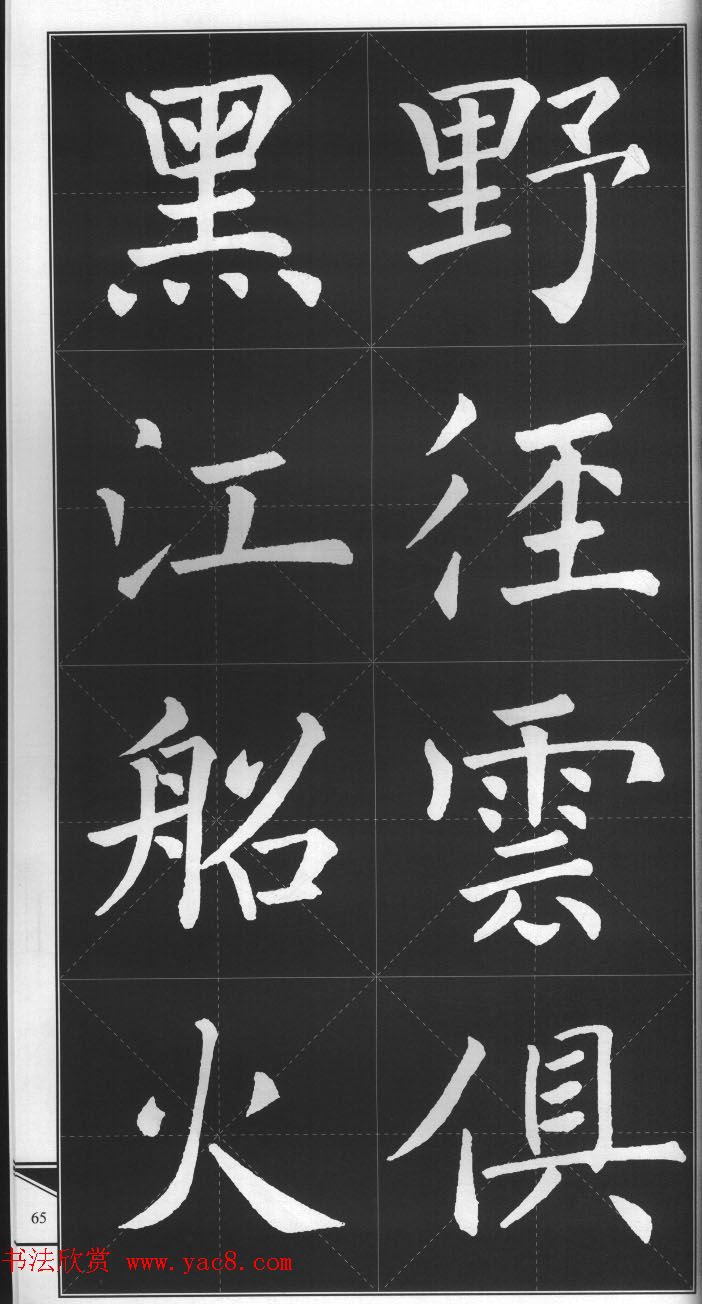 野径雲俱
黑江船火
65
书法欣赏 www.yac8.com